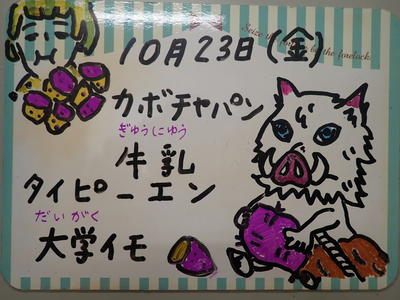 10月23日(金)
Seize the
by the forelock.
カボチャパン
ぎゅうにゅう
牛乳
タイピーエン
だいがく
大学イモ